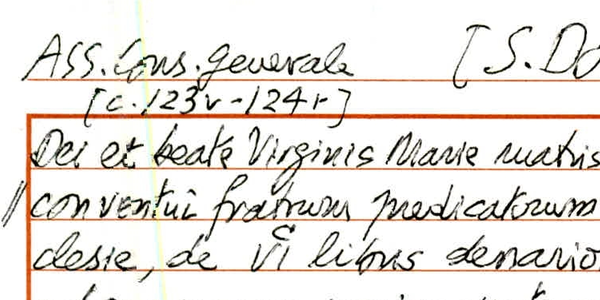 Ass. Cons. generale [S. Do
[c. 123v - 124r]
Dei et beate Virginis Marie matris
// conventui fratrum predicatorum
clesie, de VI libris denario